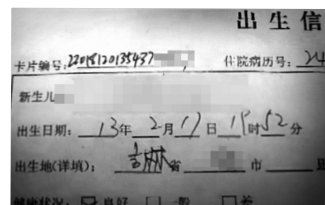 出生信
卡片编号:22018120135437
住院病历号:24
新生儿
出生日期: 13年 2月 17日 19时52分
出生地(详填): 吉林省 市
健康状况: 良好 一般